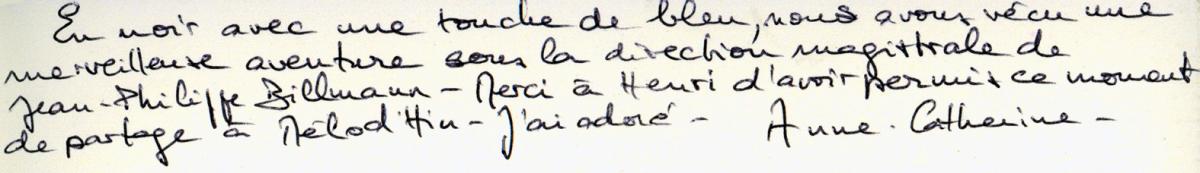 En noir avec une touche de bleu, nous avons vécu une
merveilleuse aventure sous la direction magistrale de
Jean-Philippe Billmann - Merci à Henri d'avoir permis ce moment
de partage à Mélod'Hin - J'ai adoré - Anne-Catherine -